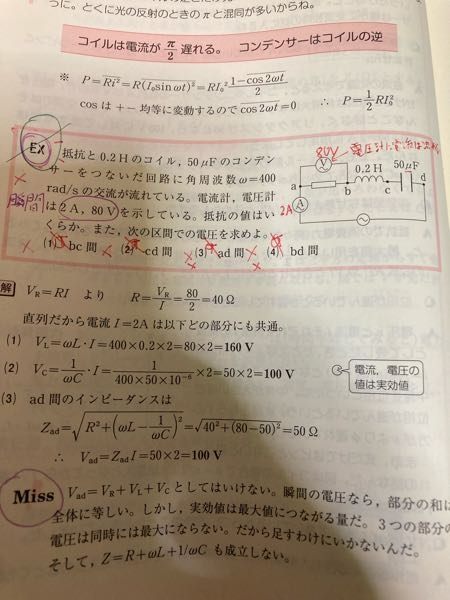 うに。とくに光の反射のときのπと混同が多いからね。
コイルは電流が π/2 遅れる。 コンデンサーはコイルの逆
※ P=Ri²=R(I₀sin ωt)²=RI₀² (1−cos 2ωt)/2
cos は +− 均等に変動するので cos2ωt=0 ∴ P=1/2 RI₀²
EX 抵抗と 0.2 H のコイル, 50 μF のコンデン
サーをつないだ回路に角周波数 ω=400
rad/s の交流が流れている。電流計, 電圧計
瞬間
は 2 A, 80 V を示している。抵抗の値はいく
らか。また, 次の区間での電圧を求めよ。
(1) bc 間 (2) cd 間 (3) ad 間 (4) bd 間
80V
V
0.2H 50μF
a b c d
A 2A
解 V_R=RI より R=V_R/I=80/2=40 Ω
直列だから電流 I=2A は以下どの部分にも共通。
(1) V_L=ωL・I=400×0.2×2=80×2=160 V
(2) V_C=1/ωC・I=1/(400×50×10⁻⁶)×2=50×2=100 V
電流, 電圧の
値は実効値
(3) ad 間のインピーダンスは
Z_ad=√(R²+(ωL−1/ωC)²)=√(40²+(80−50)²)=50 Ω
∴ V_ad=Z_ad I=50×2=100 V
Miss V_ad=V_R+V_L+V_C としてはいけない。瞬間の電圧なら, 部分の和は
全体に等しい。しかし, 実効値は最大値につながる量だ。3つの部分の
電圧は同時には最大にならない。だから足すわけにいかないんだ。
そして, Z=R+ωL+1/ωC も成立しない。